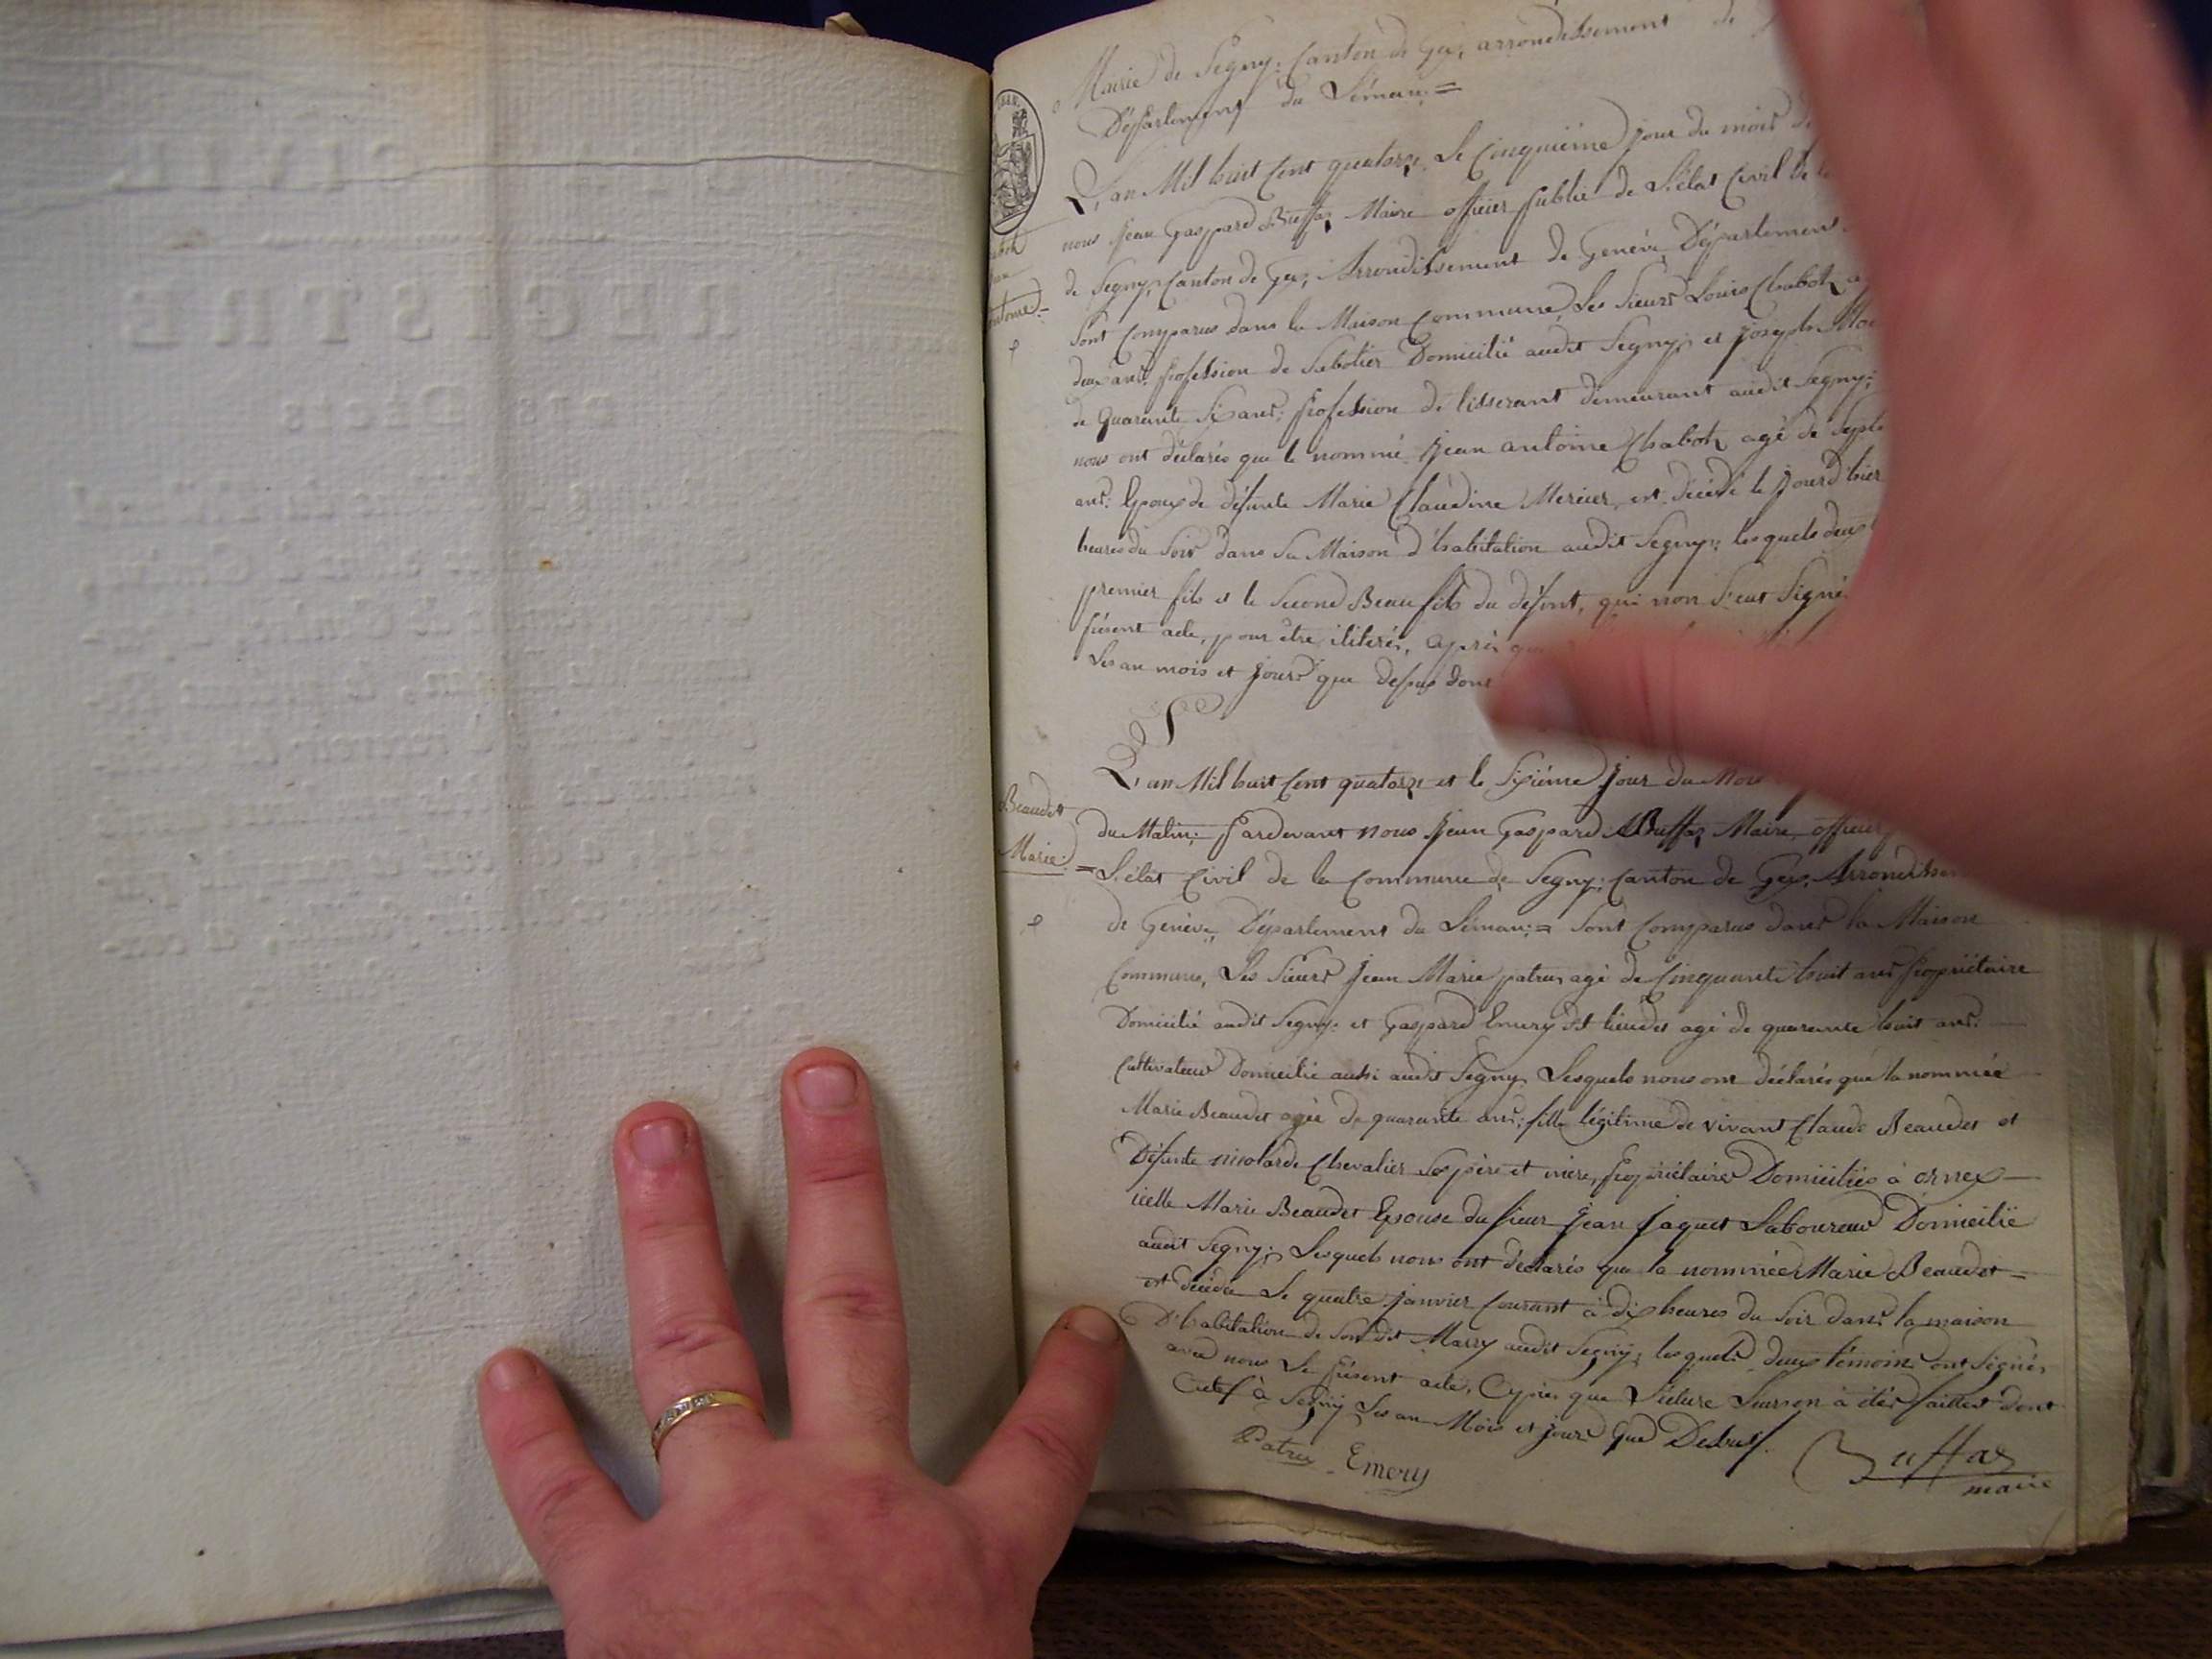 Mairie de Segny, Canton de Gex, arrondissement de
Département du Léman =
L'an Mil huit Cent quatorze, Le Cinquième jour du mois de
nous Jean Gaspard Buffaz Maire officier public de L'état Civil de la
Chaboth
Jean
antoine =
de Segny, Canton de Gex, Arrondissement de Genève, Département
Sont Comparus dans la Maison Commune, Les Sieurs Louis Chaboth
deux ans, profession de Sabotier Domicilié audit Segny; et Joseph
de Quarante Six ans; profession de tisserant demeurant audit Segny;
nous ont déclarés que le nommé Jean antoine Chaboth agé de
ans; Epoux de défunte Marie Claudine Mercier, est décédé le jourd'hier
heures du Soir dans Sa Maison d'habitation audit Segny; lesquels deux
premier fils et le Second Beaufils du défunt, qui non S'eut Signé
présent acte, pour être iliterés, après que
Les an mois et jours que depus dont
L'an Mil huit Cent quatorze et le Sixième jour du Mois
Beaudet
Marie =
du Matin; Pardevant nous Jean Gaspard Buffaz Maire, officier
L'état Civil de la Commune de Segny; Canton de Gex, Arrondissement
de Genève, Département du Léman; = Sont Comparus dans la Maison
Commune, Les Sieurs Jean Marie patru, agé de Cinquante huit ans propriétaire
Domicilié audit Segny; et Gaspard Emery agé de quarante huit ans;
Cultivateur Domicilié aussi audit Segny Lesquels nous ont déclarés que la nommée
Marie Beaudet agée de quarante ans; fille légitime de vivant Claude Beaudet et
Défunte nicolarde Chevalier Ses père et mère, propriétaires Domiciliés à ornex
icelle Marie Beaudet Epouse du Sieur Jean Jaquet Laboureur Domicilié
audit Segny; Lesquels nous ont déclarés que la nommée Marie Beaudet =
est décédée Le quatre janvier Courant à dix heures du Soir dans la maison
D'habitation de Son dit Marry audit Segny; lesquels deux témoins ont Signés
avec nous Le présent acte, Après que Lecture Leurs en à étés faittes dont
acte à Segny Les an Mois et jours Que Dessus.
Patru Emery Buffaz
maire